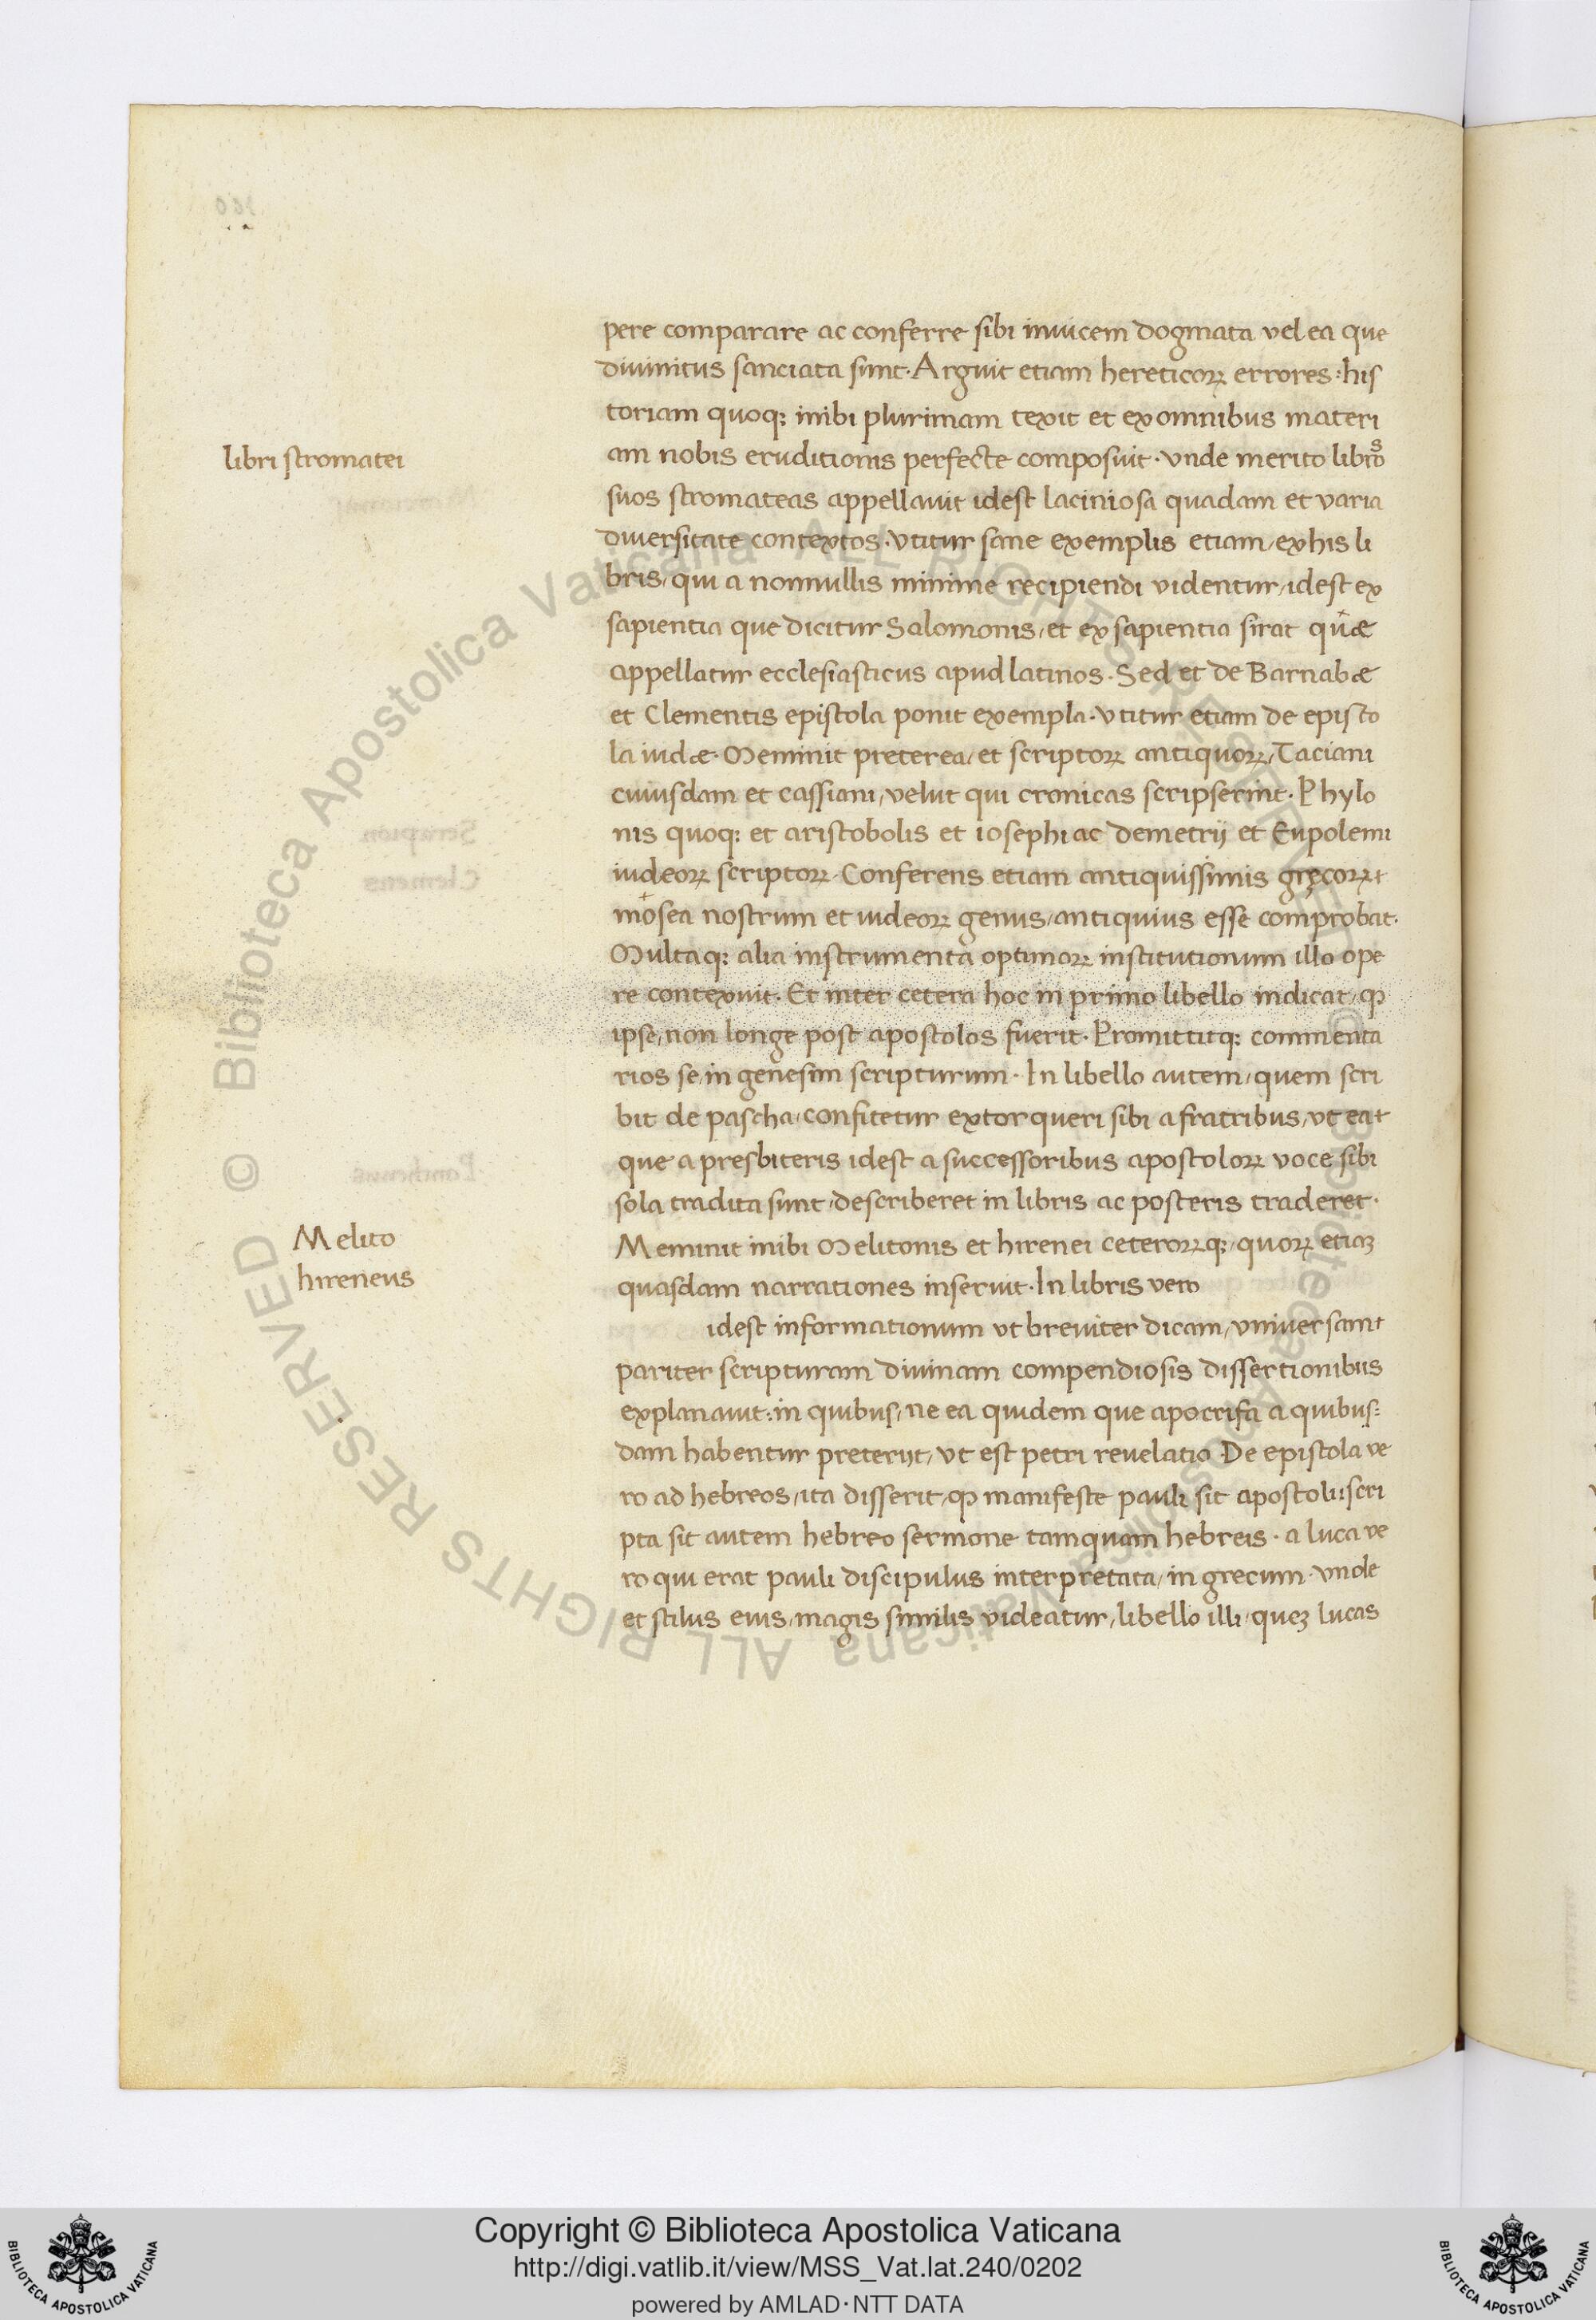 pere comparare ac conferre sibi inuicem dogmata vel ea que
diuinitus sanciata sunt· Arguit etiam hereticoꝝ errores: his
toriam quoqꝫ inibi plurimam texit et ex omnibus materi
libri stromatei
am nobis eruditionis perfecte composuit· vnde merito libros
suos stromateas appellauit idest laciniosa quadam et varia
diuersitate contextos· vtitur sane exemplis etiam/ ex his li
bris/ qui a nonnullis minime recipiendi videntur/ idest ex
sapientia que dicitur Salomonis/ et ex sapientia sirat quæ
appellatur ecclesiasticus apud latinos· Sed et de Barnabæ
et Clementis epistola ponit exempla· vtitur etiam de episto
la iudæ· Meminit preterea/ et scriptoꝝ antiquoꝝ/ Taciani
cuiusdam et cassiani/ velut qui cronicas scripserint· Phylo
nis quoqꝫ et aristobolis et iosephi ac demetrij et Eupolemi
iudeoꝝ scriptoꝝ· Conferens etiam antiquissimis gręcoꝝ
mosea nostrum et iudeoꝝ genus/ antiquius esse comprobat·
Multaqꝫ alia instrumenta optimoꝝ institutionum illo ope
re contexuit· Et inter cetera hoc in primo libello indicat/ ꝙ
ipse/ non longe post apostolos fuerit· Promittitqꝫ commenta
rios se/ in genesim scripturum· In libello autem/ quem scri
bit de pascha/ confitetur extorqueri sibi a fratribus/ vt ea
que a presbiteris idest a successoribus apostoloꝝ voce sibi
sola tradita sunt/ describeret in libris ac posteris traderet·
Melito
Meminit inibi Melitonis et hirenei ceteroꝝqꝫ/ quoꝝ etiaꝫ
hireneus
quasdam narrationes inseruit· In libris vero
idest informationum vt breuiter dicam/ vniuersam
pariter scripturam diuinam compendiosis dissertionibus
explanauit: in quibus/ ne ea quidem que apocrifa a quibus=
dam habentur preterijt/ vt est petri reuelatio· De epistola ve
ro ad hebreos/ ita disserit/ ꝙ manifeste pauli sit apostoli: scri
pta sit autem hebreo sermone tamquam hebreis· a luca ve
ro qui erat pauli discipulus interpretata/ in grecum· vnde
et stilus eius/ magis similis videatur/ libello illi/ queꝫ lucas
Copyright © Biblioteca Apostolica Vaticana
http://digi.vatlib.it/view/MSS_Vat.lat.240/0202
powered by AMLAD·NTT DATA
BIBLIOTECA APOSTOLICA VATICANA
BIBLIOTECA APOSTOLICA VATICANA
© Biblioteca Apostolica Vaticana ALL RIGHTS RESERVED
© Biblioteca Apostolica Vaticana ALL RIGHTS RESERVED